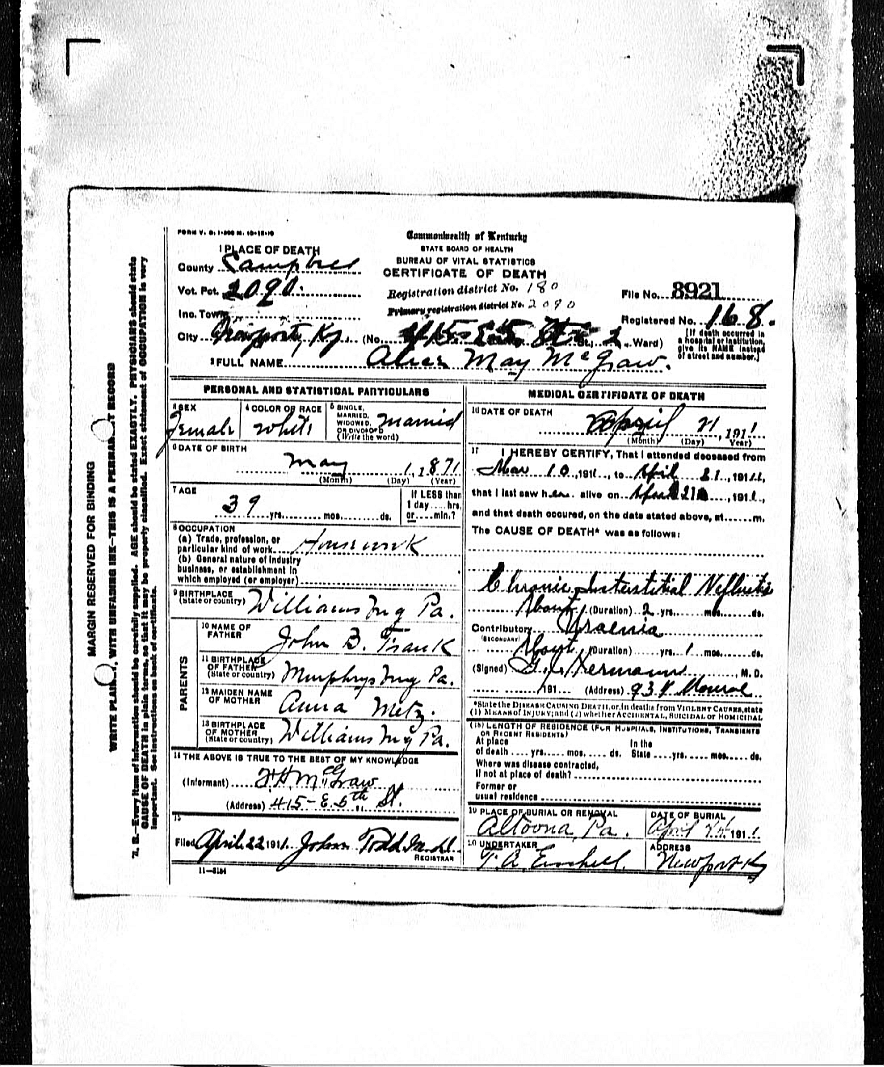 FORM V. S. 1-
Commonwealth of Kentucky
STATE BOARD OF HEALTH
BUREAU OF VITAL STATISTICS
CERTIFICATE OF DEATH
1 PLACE OF DEATH
County Campbell
Vot. Pct. 2090
Registration district No. 180
File No. 8921
Inc. Town
Primary registration district No. 2090
Registered No. 168.
City Newport, Ky. (No. 415 St., 2 Ward)
[If death occurred in a hospital or institution, give its NAME instead of street and number.]
2 FULL NAME Alice May McGraw.
PERSONAL AND STATISTICAL PARTICULARS
3 SEX Female
4 COLOR OR RACE White
5 SINGLE, MARRIED, WIDOWED, OR DIVORCED (Write the word) Married
6 DATE OF BIRTH
May 1, 1871
(Month) (Day) (Year)
7 AGE
39 yrs. mos. ds.
If LESS than 1 day hrs. or min.?
8 OCCUPATION
(a) Trade, profession, or particular kind of work Housework
(b) General nature of industry
business, or establishment in
which employed (or employer)
9 BIRTHPLACE
(State or country) Williamsburg Pa.
PARENTS
10 NAME OF FATHER John B. Frank
11 BIRTHPLACE OF FATHER (State or country) Pa.
12 MAIDEN NAME OF MOTHER Anna Metz.
13 BIRTHPLACE OF MOTHER (State or country) Williamsburg Pa.
14 THE ABOVE IS TRUE TO THE BEST OF MY KNOWLEDGE
(Informant) McGraw
(Address) 415-E 5th St.
15
Filed April 22 1911 John Todd M.D.
REGISTRAR
11—5184
MEDICAL CERTIFICATE OF DEATH
16 DATE OF DEATH
April 21, 1911
(Month) (Day) (Year)
17 I HEREBY CERTIFY, That I attended deceased from
Mar 10, 1911, to April 21, 1911,
that I last saw her alive on April 21, 1911,
and that death occured, on the date stated above, at m.
The CAUSE OF DEATH* was as follows:
Chronic Interstitial Nefhritis
About (Duration) 2 yrs. mos. ds.
Contributory Uraemia
(SECONDARY)
About (Duration) yrs. 1 mos. ds.
(Signed) M.D.
191 (Address) 93 Monroe
*State the DISEASE CAUSING DEATH, or, in deaths from VIOLENT CAUSES, state
(1) MEANS OF INJURY; and (2) whether ACCIDENTAL, SUICIDAL or HOMICIDAL
(18) LENGTH OF RESIDENCE (FOR HOSPITALS, INSTITUTIONS, TRANSIENTS
OR RECENT RESIDENTS)
At place of death yrs. mos. ds. In the State yrs. mos. ds.
Where was disease contracted,
if not at place of death?
Former or
usual residence
19 PLACE OF BURIAL OR REMOVAL
Altoona, Pa.
DATE OF BURIAL
April 24 1911
20 UNDERTAKER
ADDRESS
Newport Ky
MARGIN RESERVED FOR BINDING
WRITE PLAINLY, WITH UNFADING INK—THIS IS A PERMANENT RECORD
N. B.—Every item of information should be carefully supplied. AGE should be stated EXACTLY. PHYSICIANS should state
CAUSE OF DEATH in plain terms, so that it may be properly classified. Exact statement of OCCUPATION is very
important. See instructions on back of certificate.